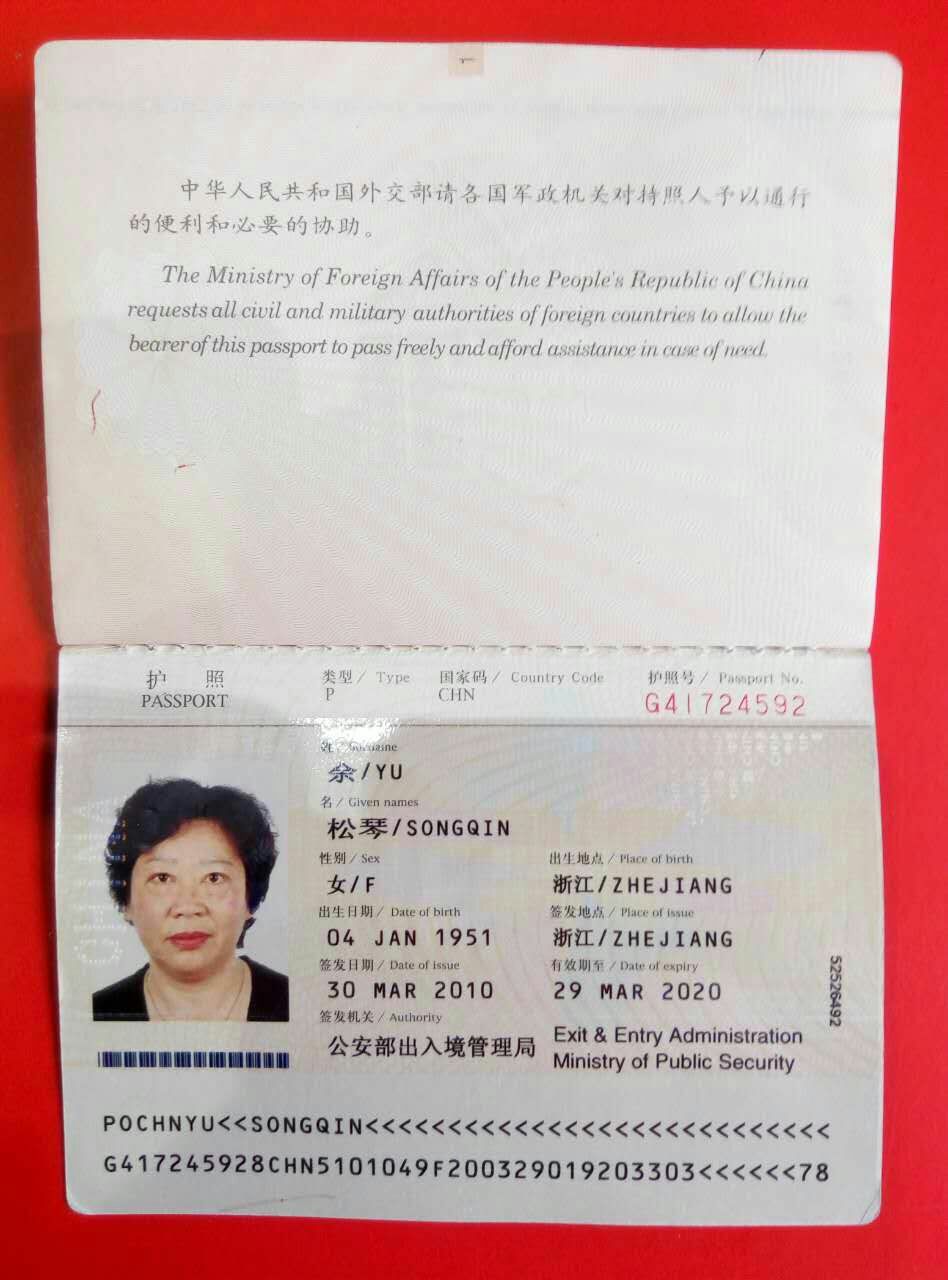 中华人民共和国外交部请各国军政机关对持照人予以通行
的便利和必要的协助。
The Ministry of Foreign Affairs of the People's Republic of China
requests all civil and military authorities of foreign countries to allow the
bearer of this passport to pass freely and afford assistance in case of need.
护 照 类型 / Type 国家码 / Country Code 护照号 / Passport No.
PASSPORT P CHN G41724592
姓 / Surname
余/YU
名 / Given names
松琴/SONGQIN
性别 / Sex 出生地点 / Place of birth
女/F 浙江/ZHEJIANG
出生日期 / Date of birth 签发地点 / Place of issue
04 JAN 1951 浙江/ZHEJIANG
签发日期 / Date of issue 有效期至 / Date of expiry
30 MAR 2010 29 MAR 2020
签发机关 / Authority
公安部出入境管理局 Exit & Entry Administration
Ministry of Public Security
52526492
POCHNYU<<SONGQIN<<<<<<<<<<<<<<<<<<<<<<<<<<<<
G417245928CHN5101049F200329019203303<<<<<<78